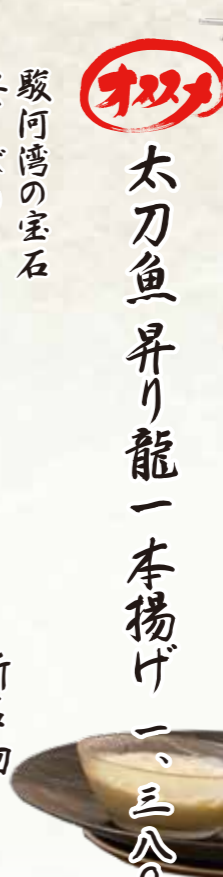 オススメ
太刀魚 昇り龍一本揚げ 一、三八
駿河湾の宝石